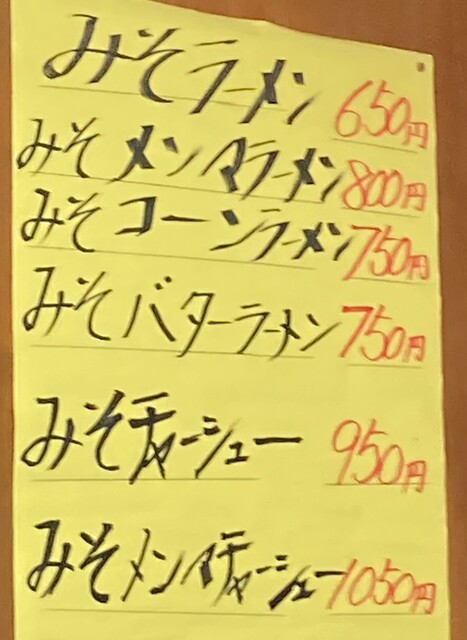 みそラーメン 650円
みそメンマラーメン 800円
みそコーンラーメン 750円
みそバターラーメン 750円
みそチャーシュー 950円
みそメンマチャーシュー 1050円